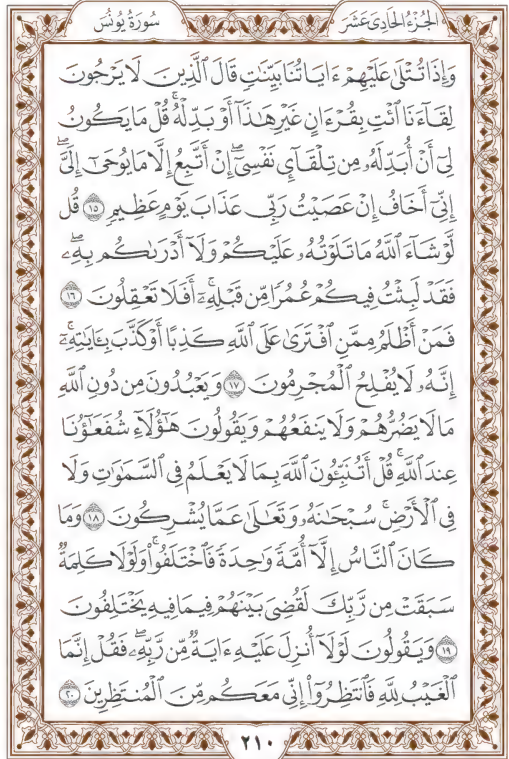 الجُزْءُ الحَادِىَ عَشَرَ
سُورَةُ يُونُسَ
وَإِذَا تُتْلَىٰ عَلَيْهِمْ ءَايَاتُنَا بَيِّنَٰتٍ قَالَ ٱلَّذِينَ لَا يَرْجُونَ
لِقَآءَنَا ٱئْتِ بِقُرْءَانٍ غَيْرِ هَٰذَآ أَوْ بَدِّلْهُ ۚ قُلْ مَا يَكُونُ
لِىٓ أَنْ أُبَدِّلَهُۥ مِن تِلْقَآىِٕ نَفْسِىٓ ۖ إِنْ أَتَّبِعُ إِلَّا مَا يُوحَىٰٓ إِلَىَّ ۖ
إِنِّىٓ أَخَافُ إِنْ عَصَيْتُ رَبِّى عَذَابَ يَوْمٍ عَظِيمٍ ١٥ قُل
لَّوْ شَآءَ ٱللَّهُ مَا تَلَوْتُهُۥ عَلَيْكُمْ وَلَآ أَدْرَىٰكُم بِهِۦ ۖ
فَقَدْ لَبِثْتُ فِيكُمْ عُمُرًا مِّن قَبْلِهِۦٓ ۚ أَفَلَا تَعْقِلُونَ ١٦
فَمَنْ أَظْلَمُ مِمَّنِ ٱفْتَرَىٰ عَلَى ٱللَّهِ كَذِبًا أَوْ كَذَّبَ بِـَٔايَٰتِهِۦٓ ۚ
إِنَّهُۥ لَا يُفْلِحُ ٱلْمُجْرِمُونَ ١٧ وَيَعْبُدُونَ مِن دُونِ ٱللَّهِ
مَا لَا يَضُرُّهُمْ وَلَا يَنفَعُهُمْ وَيَقُولُونَ هَٰٓؤُلَآءِ شُفَعَٰٓؤُنَا
عِندَ ٱللَّهِ ۚ قُلْ أَتُنَبِّـُٔونَ ٱللَّهَ بِمَا لَا يَعْلَمُ فِى ٱلسَّمَٰوَٰتِ وَلَا
فِى ٱلْأَرْضِ ۚ سُبْحَٰنَهُۥ وَتَعَٰلَىٰ عَمَّا يُشْرِكُونَ ١٨ وَمَا
كَانَ ٱلنَّاسُ إِلَّآ أُمَّةً وَٰحِدَةً فَٱخْتَلَفُوا۟ ۚ وَلَوْلَا كَلِمَةٌ
سَبَقَتْ مِن رَّبِّكَ لَقُضِىَ بَيْنَهُمْ فِيمَا فِيهِ يَخْتَلِفُونَ
١٩ وَيَقُولُونَ لَوْلَآ أُنزِلَ عَلَيْهِ ءَايَةٌ مِّن رَّبِّهِۦ ۖ فَقُلْ إِنَّمَا
ٱلْغَيْبُ لِلَّهِ فَٱنتَظِرُوٓا۟ إِنِّى مَعَكُم مِّنَ ٱلْمُنتَظِرِينَ ٢٠
٢١٠